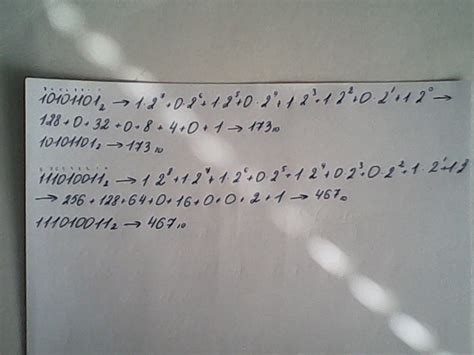 10101101₂ → 1·2⁷+0·2⁶+1·2⁵+0·2⁴+1·2³+1·2²+0·2¹+1·2⁰ →
128+0+32+0+8+4+0+1 → 173₁₀
10101101₂ → 173₁₀
111010011₂ → 1·2⁸+1·2⁷+1·2⁶+0·2⁵+1·2⁴+0·2³+0·2²+1·2¹+1·2
→ 256+128+64+0+16+0+0+2+1 → 467₁₀
111010011₂ → 467₁₀